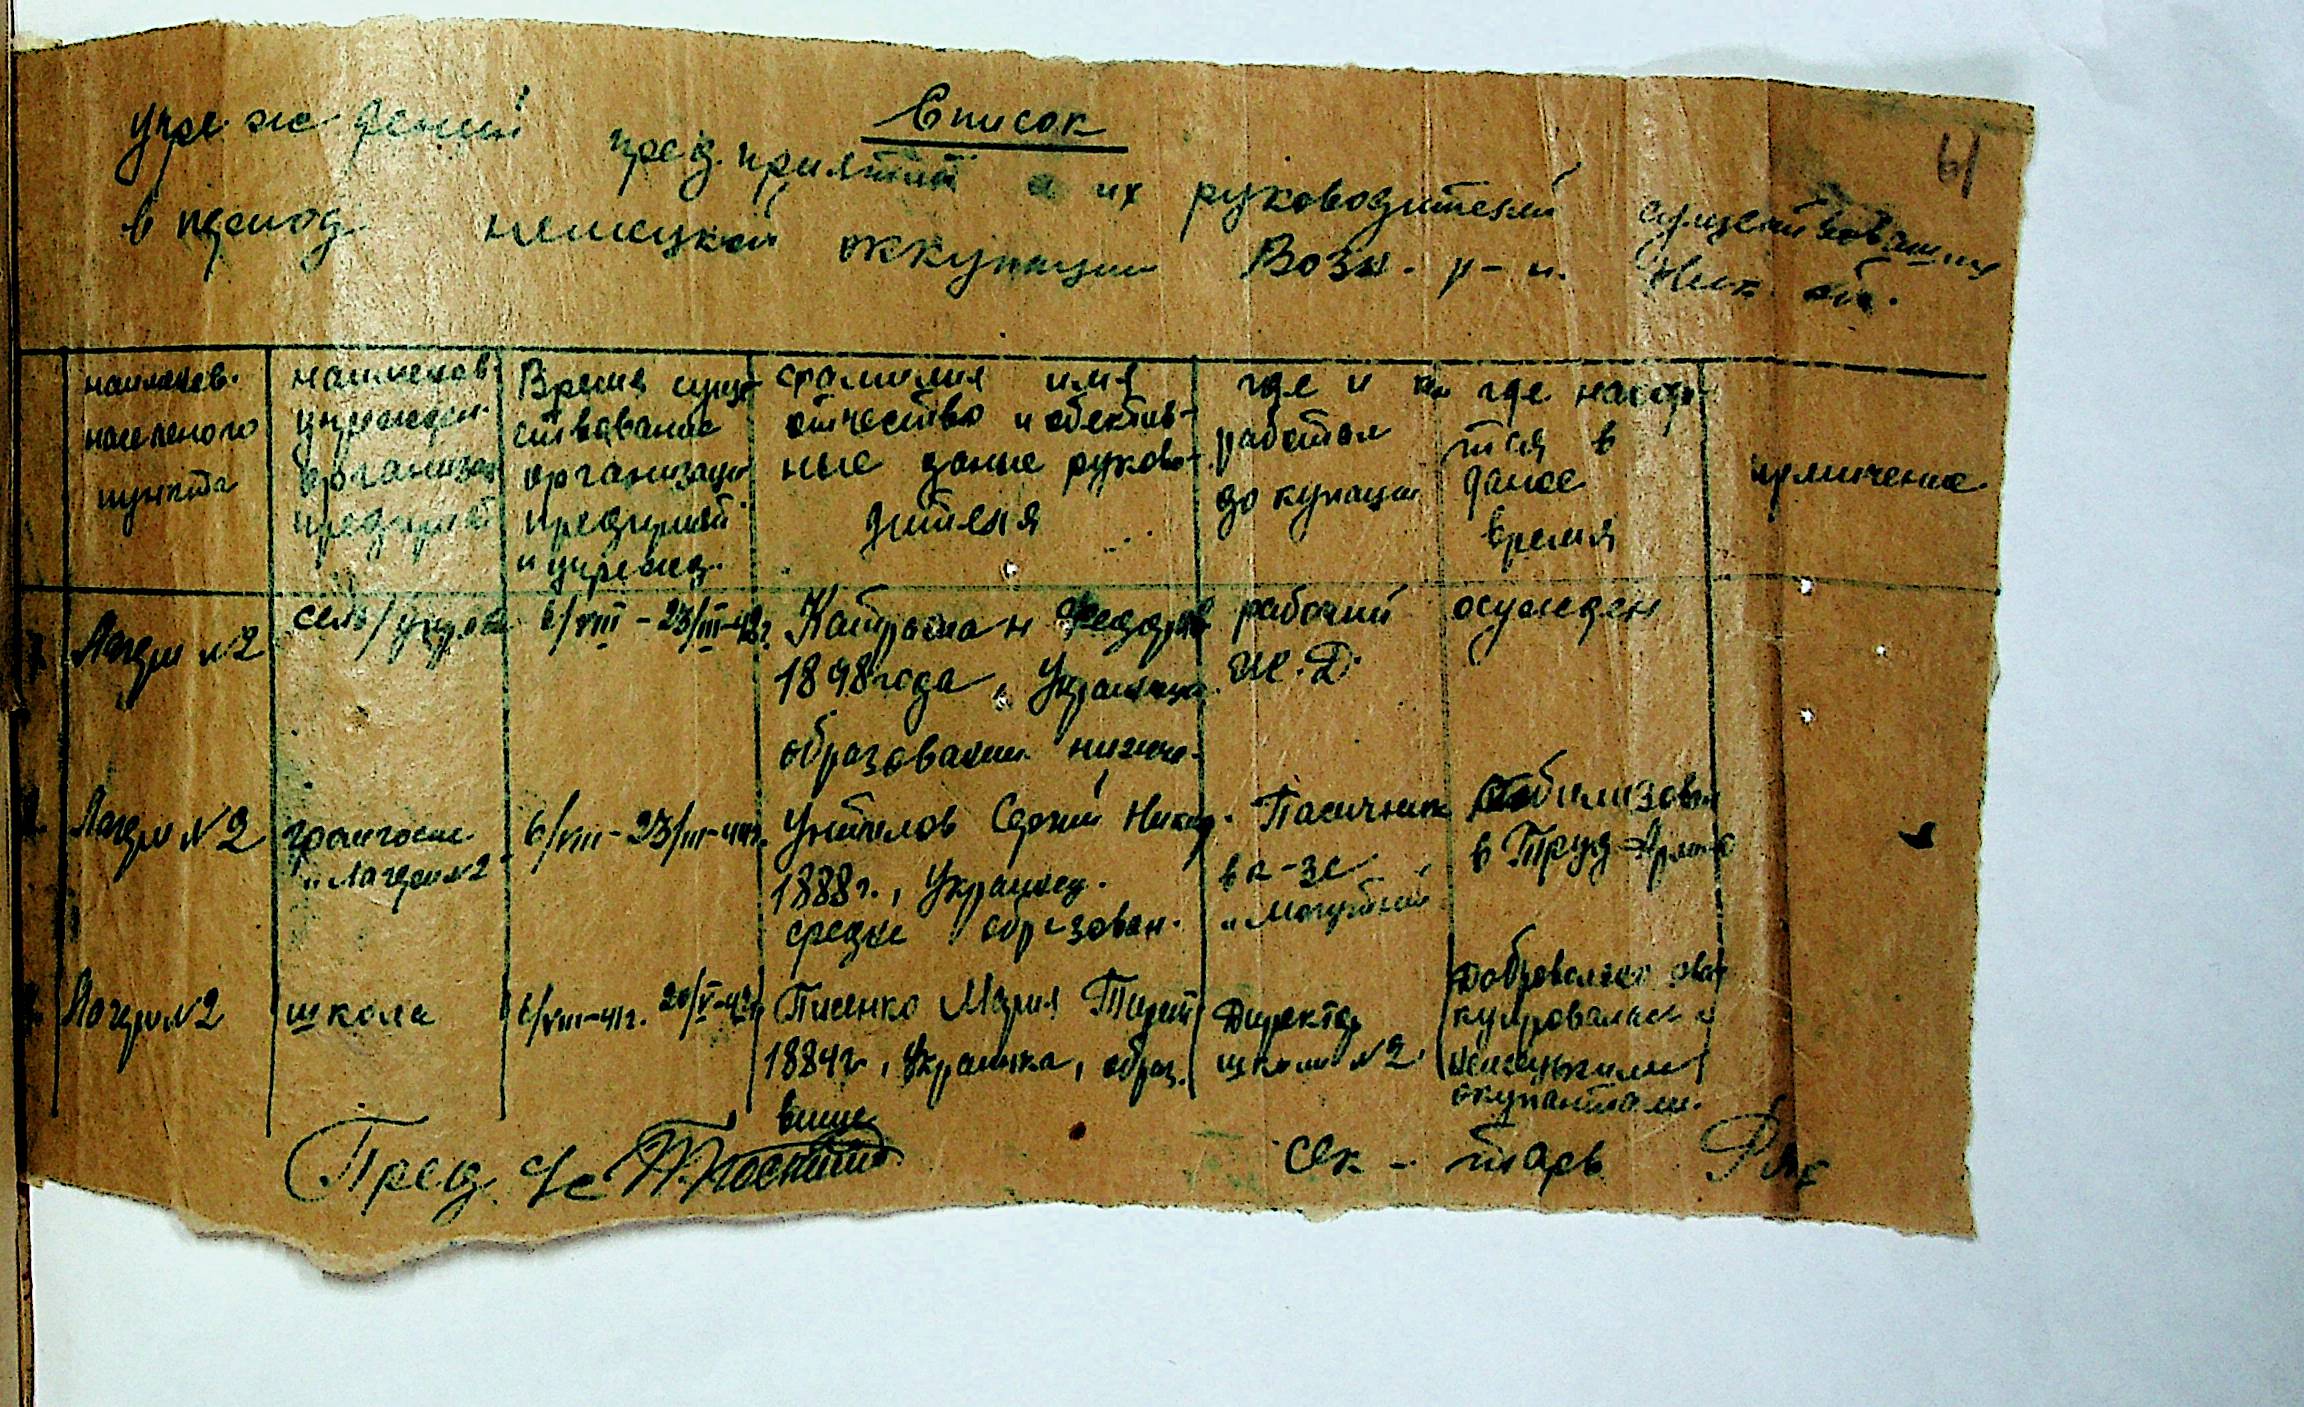 Список
учреждений предприятий и их руководителей существовавших
в период немецкой оккупации Возн. р-н. Ник. об.
61
наименов.
населеного
пункта
наименов.
учрежден.
организац
предприят
Время суще
ствование
организаци
предприят
и учрежд.
фамилия имя
отчество и обектив-
ные даные руково-
дителя
где и
работал
до купации
где наход
ится в
даное
время
примичение
Лагери №2
сель/управа
6/VIII - 23/III-44г.
1898года, Украинец.
образование низше.
рабочий
Ж.Д.
осужден
2. Лагери №2
"Лагери №2"
6/VIII - 23/III-44г.
Сергий Никиф.
1888г., Украинец.
средне образован.
Пасичник
в к-зе
"Могутний"
Мобилизован
в Труд-Армию
3. Лагери №2
школа
6/VIII-41г. 20/V-43г.
Писенко Мария
1884г, Украинка, образ.
више
Директор
школи №2.
Добровольно эва
куировалась с
немецкими
окупантами.
Пред. с/с
сек-тарь